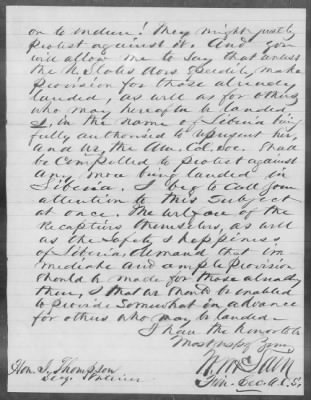 on to endure! They might justly
protest against it. And you
will allow me to say that unless
the U. States does speedily make
provision for those already
landed, as well as for others
who may hereafter be landed
I, in the name of Liberia being
fully authorised to represent her,
and we, the Am. Col. Soc. shall
be compelled to protest against
any more being landed in
Liberia. I beg to call your
attention to this subject
at once. The welfare of the
Recaptives themselves, as well
as the safety & happiness
of Liberia demand that im
mediate and ample provision
should be made for those already
there, & that we should be enabled
to provide somewhat in advance
for others who may be landed.
I have the honor to be
Most resp. Yours,
W. McLain
Fin. Sec. A. C. S.
Hon. J. Thompson
Secy. Interior